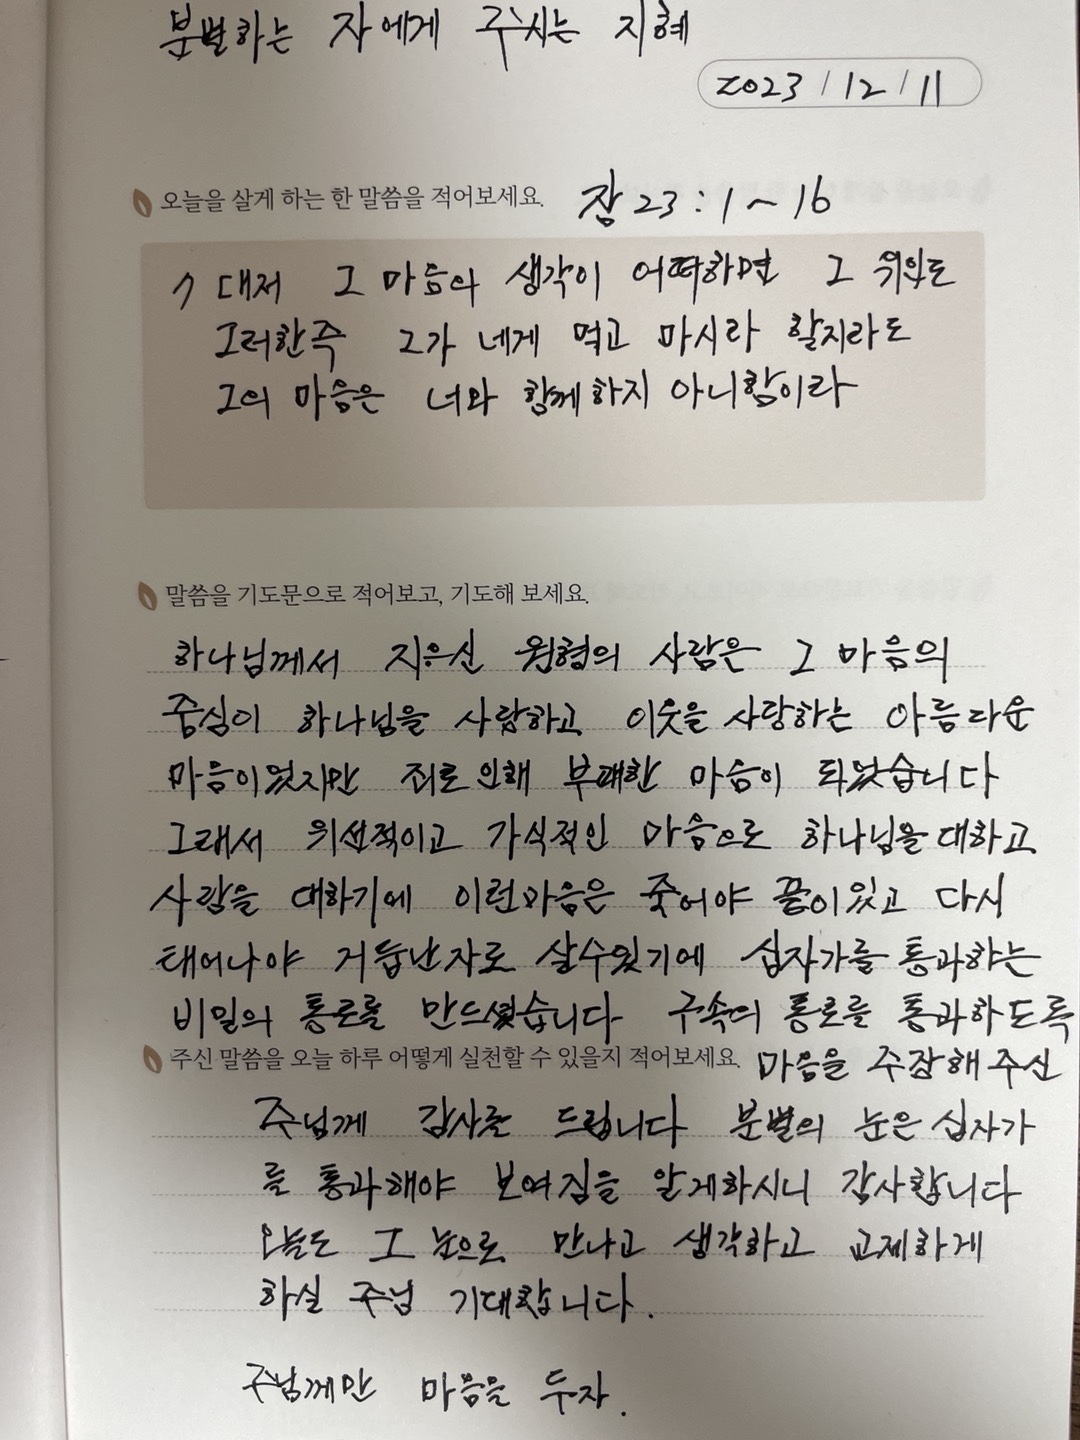 분별하는 자에게 주시는 지혜
2023 / 12 / 11
오늘을 살게 하는 한 말씀을 적어보세요. 잠 23 : 1 ~ 16
7 대저 그 마음의 생각이 어떠하면 그 위인도
그러한즉 그가 네게 먹고 마시라 할지라도
그의 마음은 너와 함께하지 아니함이라
말씀을 기도문으로 적어보고, 기도해 보세요.
하나님께서 지으신 원형의 사람은 그 마음의
중심이 하나님을 사랑하고 이웃을 사랑하는 아름다운
마음이었지만 죄로인해 부패한 마음이 되었습니다
그래서 위선적이고 가식적인 마음으로 하나님을 대하고
사람을 대하기에 이런마음은 죽어야 끝이있고 다시
태어나야 거듭난자로 살수있기에 십자가를 통과하는
비밀의 통로를 만드셨습니다 구속의 통로를 통과하도록
주신 말씀을 오늘 하루 어떻게 실천할 수 있을지 적어보세요. 마음을 주장해주신
주님께 감사를 드립니다 분별의 눈은 십자가
를 통과해야 보여짐을 알게하시니 감사합니다
오늘도 그 눈으로 만나고 생각하고 교제하게
하실 주님 기대합니다.
주님께만 마음을 두자.